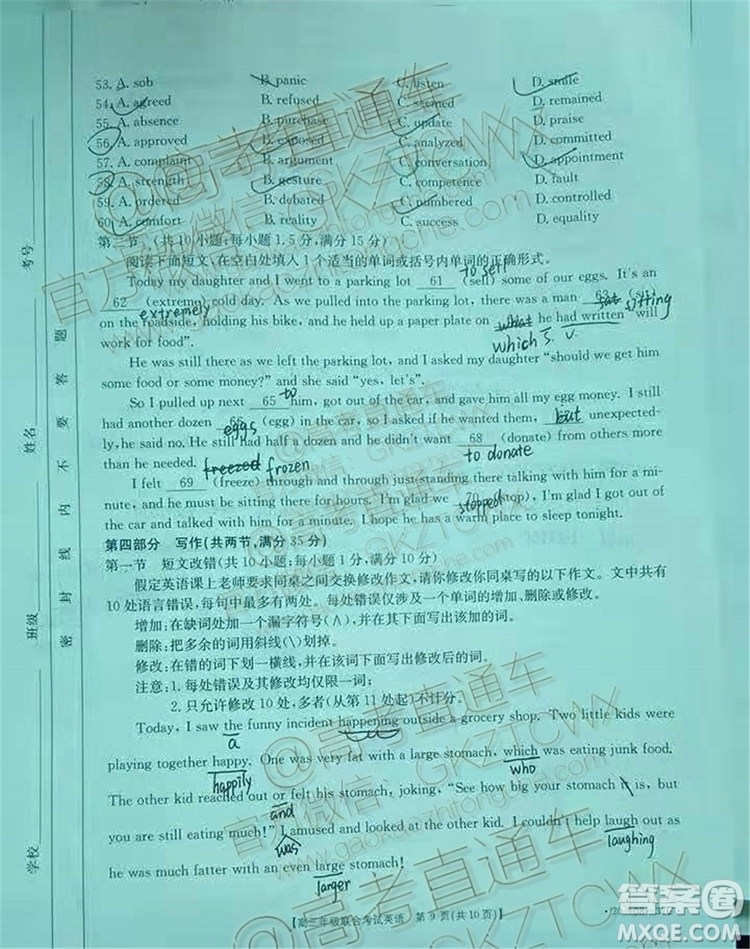 53. A. sob B. panic C. listen D. smile
54. A. agreed B. refused C. seemed D. remained
55. A. absence B. purchase C. update D. praise
56. A. approved B. exposed C. analyzed D. committed
57. A. complaint B. argument C. conversation D. appointment
58. A. strength B. gesture C. competence D. fault
59. A. ordered B. debated C. numbered D. controlled
60. A. comfort B. reality C. success D. equality
第二节 (共10小题;每小题1.5分,满分15分)
阅读下面短文,在空白处填入1个适当的单词或括号内单词的正确形式。
to sell
Today my daughter and I went to a parking lot 61 (sell) some of our eggs. It's an
62 (extreme) cold day. As we pulled into the parking lot, there was a man 63 (sit)
extremely sat sitting
on the roadside, holding his bike, and he held up a paper plate on what he had written "will
which S. v.
work for food".
He was still there as we left the parking lot, and I asked my daughter "should we get him
some food or some money?" and she said "yes, let's".
So I pulled up next 65 to him, got out of the car, and gave him all my egg money. I still
had another dozen 66 (egg) in the car, so I asked if he wanted them, but unexpected-
eggs
ly, he said no. He still had half a dozen and he didn't want 68 (donate) from others more
to donate
than he needed. freezed frozen
I felt 69 (freeze) through and through just standing there talking with him for a mi-
nute, and he must be sitting there for hours. I'm glad we 70 (stop), and I got out of
stopped
the car and talked with him for a minute. I hope he has a warm place to sleep tonight.
第四部分 写作(共两节,满分35分)
第一节 短文改错(共10小题;每小题1分,满分10分)
假定英语课上老师要求同桌之间交换修改作文,请你修改你同桌写的以下作文。文中共有
10处语言错误,每句中最多有两处。每处错误仅涉及一个单词的增加、删除或修改。
增加:在缺词处加一个漏字符号(∧),并在其下面写出该加的词。
删除:把多余的词用斜线(\)划掉。
修改:在错的词下划一横线,并在该词下面写出修改后的词。
注意:1. 每处错误及其修改均仅限一词;
2. 只允许修改10处,多者(从第11处起)不计分。
Today, I saw the funny incident happening outside a grocery shop. Two little kids were
a
playing together happy. One was very fat with a large stomach, which was eating junk food.
happily who
The other kid reached out or felt his stomach, joking, "See how big your stomach it is, but
and
you are still eating much!" I amused and looked at the other kid. I couldn't help laugh out as
was laughing
he was much fatter with an even large stomach!
larger
【高三年级联合考试英语 第9页(共10页)】
学校 班级 姓名 考号
密 封 线 内 不 要 答 题
@高考直通车
官方微信:GKZTCWX
gaokaozhitongche.com
@高考直通车
官方微信:GKZTCWX
gaokaozhitongche.com
答案圈
MXQE.COM